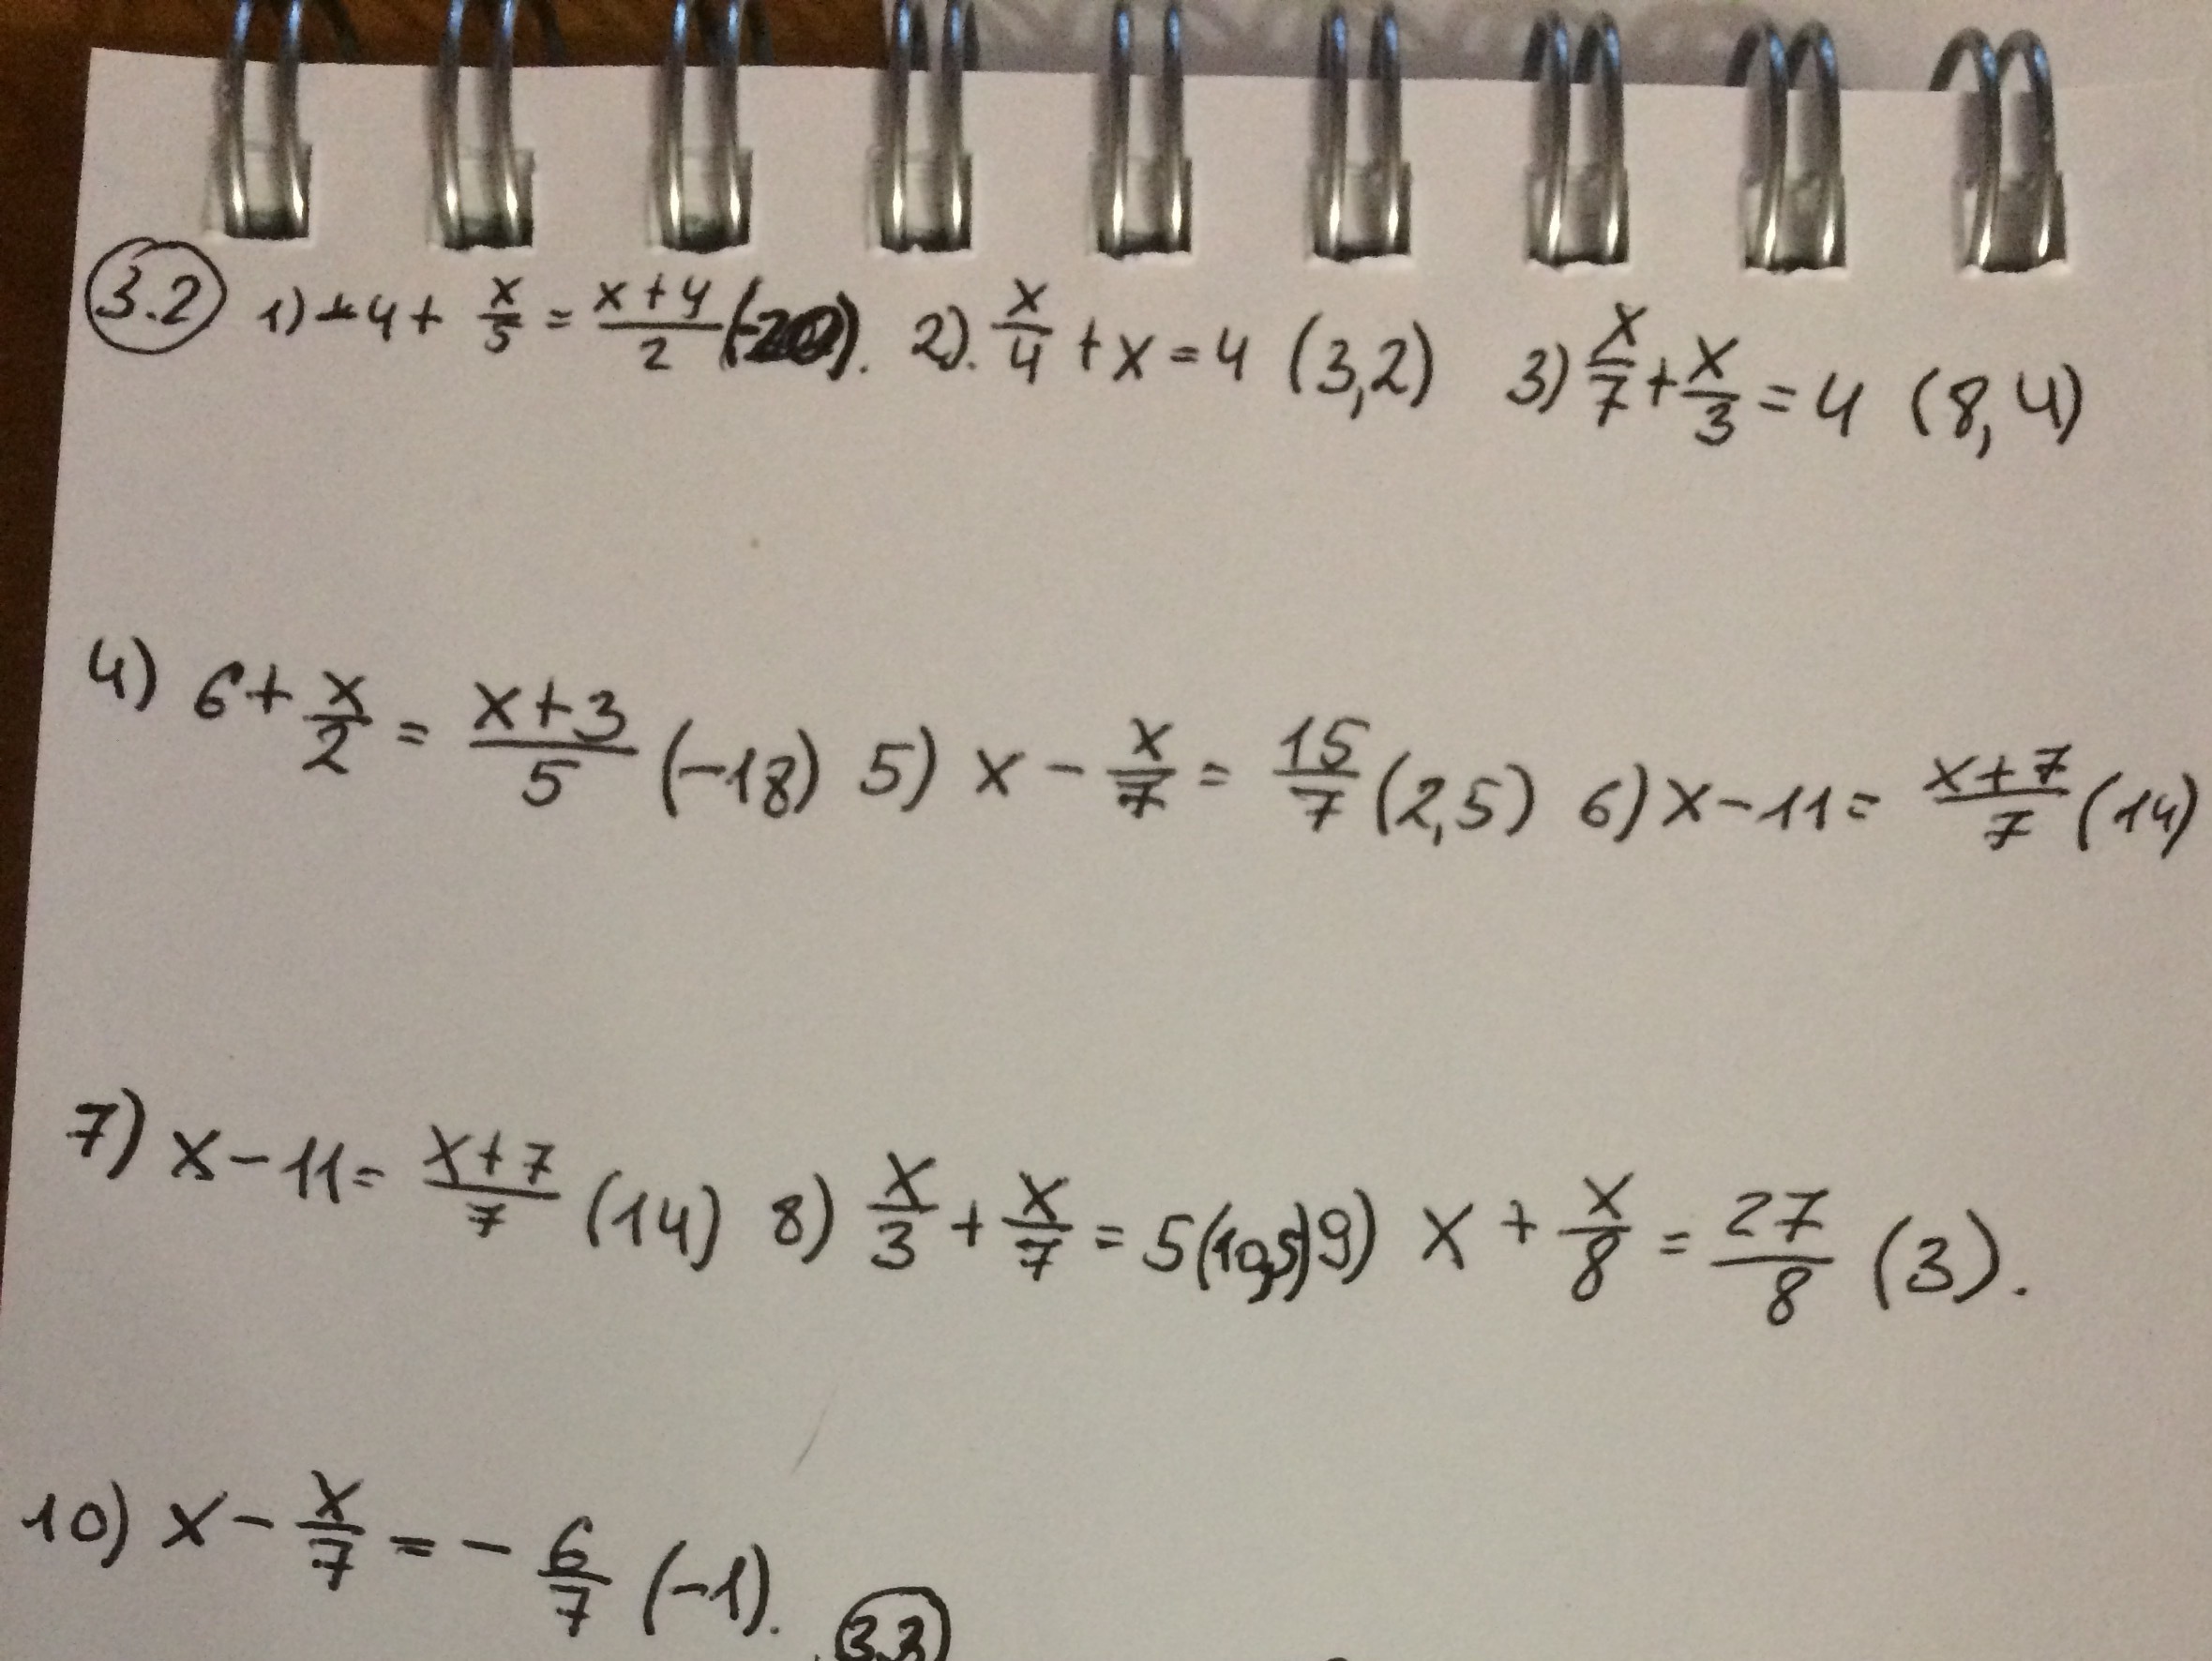 3.2 1) -4 + x/5 = (x+4)/2 . 2). x/4 + x = 4 (3,2) 3) x/7 + x/3 = 4 (8,4)
4) 6 + x/2 = (x+3)/5 (-18) 5) x - x/7 = 15/7 (2,5) 6) x - 11 = (x+7)/7 (14)
7) x - 11 = (x+7)/7 (14) 8) x/3 + x/7 = 5 (10,5) 9) x + x/8 = 27/8 (3).
10) x - x/7 = - 6/7 (-1). 3.3